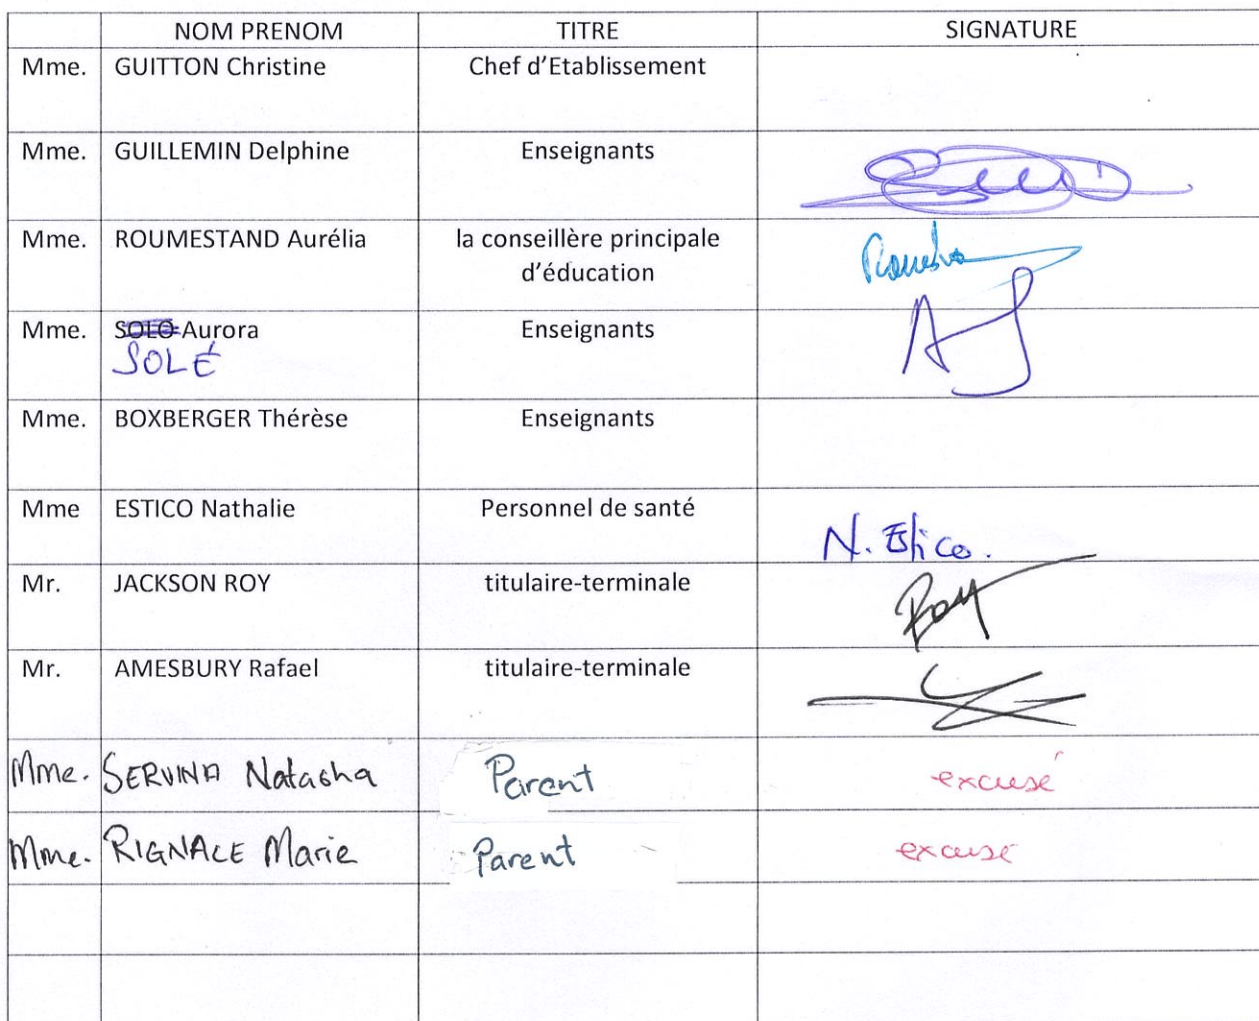 NOM PRENOM TITRE SIGNATURE
Mme. GUITTON Christine Chef d'Etablissement
Mme. GUILLEMIN Delphine Enseignants
Mme. ROUMESTAND Aurélia la conseillère principale
d'éducation
Mme. SOLO Aurora Enseignants
SOLÉ
Mme. BOXBERGER Thérèse Enseignants
Mme ESTICO Nathalie Personnel de santé
N. Estico.
Mr. JACKSON ROY titulaire-terminale
Roy
Mr. AMESBURY Rafael titulaire-terminale
Mme. SERVINA Natasha Parent excusé
Mme. RIGNACE Marie Parent excusé